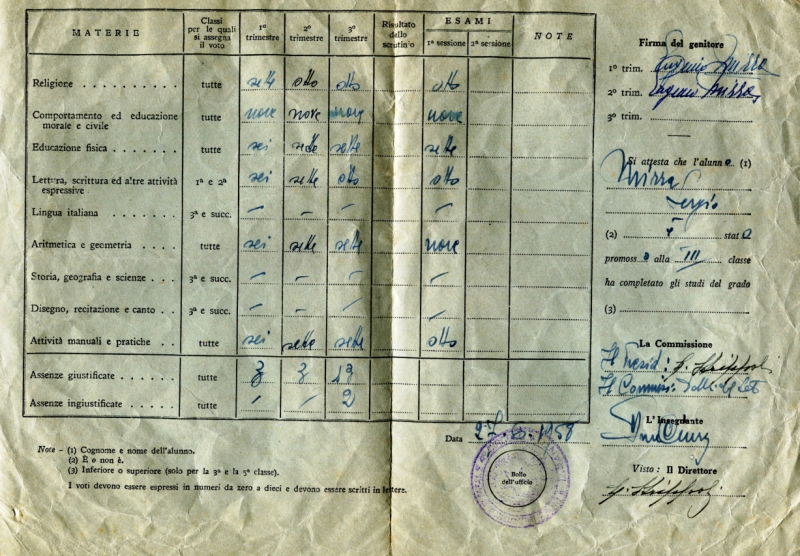 MATERIE
Classi per le quali si assegna il voto
1º trimestre
2º trimestre
3º trimestre
Risultato dello scrutinio
ESAMI
1ª sessione
2ª sessione
NOTE
Religione . . . . . . . . . . tutte sette otto otto otto
Comportamento ed educazione
morale e civile tutte nove nove nove nove
Educazione fisica . . . . . . . tutte sei sette sette sette
Lettura, scrittura ed altre attività
espressive 1ª e 2ª sei sette otto otto
Lingua italiana . . . . . . . 3ª e succ. – – – –
Aritmetica e geometria . . . . tutte sei sette sette nove
Storia, geografia e scienze . . . 3ª e succ. – – – –
Disegno, recitazione e canto . . 3ª e succ. – – – –
Attività manuali e pratiche . . tutte sei sette sette otto
Assenze giustificate . . . . . . tutte 3 3 13
Assenze ingiustificate . . . . . tutte – – 2
Note - (1) Cognome e nome dell'alunno.
(2) È o non è.
(3) Inferiore o superiore (solo per la 3ª e la 5ª classe).
I voti devono essere espressi in numeri da zero a dieci e devono essere scritti in lettere.
Data 27.6.1958
Bollo
dell'ufficio
Firma del genitore
1º trim. Eugenio Mirra
2º trim. Eugenio Mirra
3º trim.
Si attesta che l'alunno (1)
Mirra
Sergio
(2) è stato
promosso alla III classe
ha completato gli studi del grado
(3)
La Commissione
Il Presid:
Il Commiss:
L'Insegnante
Visto: Il Direttore